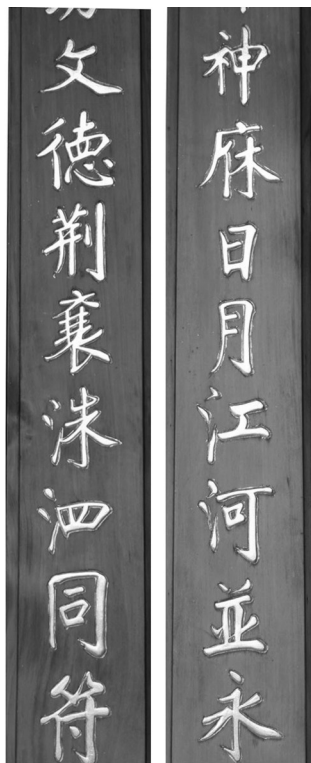 神庥日月江河並永
文德荊襄洙泗同符